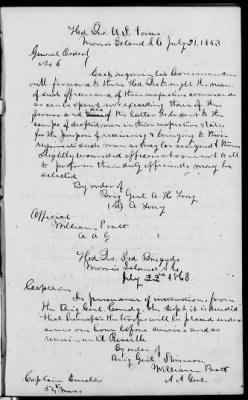 Hd. Qrs. U.S. Forces
Morris Island S.C. July 21, 1863
General Orders
No 6
Each regimental Commander
will forward to these Hd. Qrs. to night the names
of such officers and of their respective commands
as can be spared not exceeding three of the
former and of the latter to be sent to the
camps of drafted men in their respective states
for the purpose of receiving & bringing to their
regiment such men as may be assigned to them
Slightly wounded officers & men not to ill
to perform this duty efficiently may be
selected
By order of
Brig Genl
Official
William
A A G
Hd. Qrs. 3rd Brigade
Morris Island S.C.
July 22nd 1863
Captain
In pursuance of instructions from
the Brig Genl Comdg the Dept it is directed
that hereafter the troops will be placed under
arms one hour before sunrise and so
remain until Reveille
By order of
Brig Genl Stevenson
William
A A Genl
Captain
54th Mass